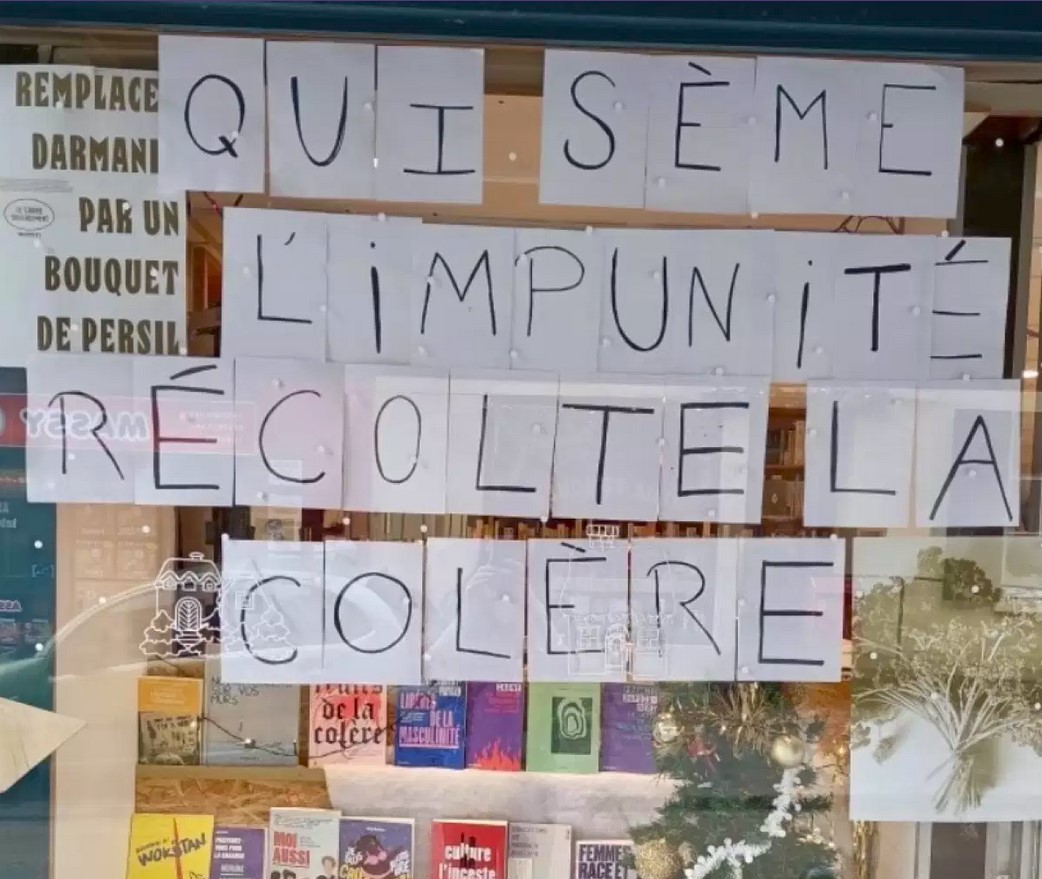 REMPLACE
DARMANI
PAR UN
BOUQUET
DE PERSIL
QUI SÈME
L'IMPUNITÉ
RÉCOLTE LA
COLÈRE
MASSY
fruits
de la
colère
LIBÉRÉS
DE LA
MASCULINITÉ
WOKSTAN
MOI
AUSSI
La
culture
de
l'inceste
FEMMES
RACE ET